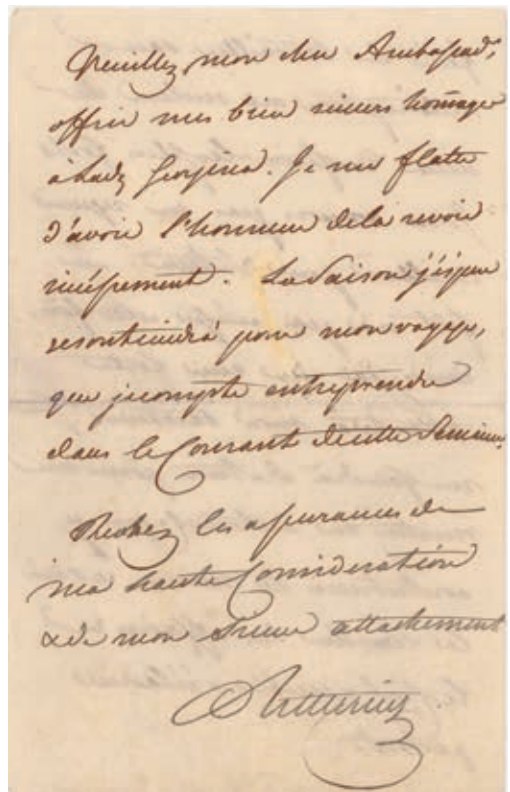 Veuillez, mon cher Ambassadr,
offrir mes bien sincers homages
à Lady Georgina. Je me flatte
d'avoir l'honneur de la revoir
incessement. La Saison j'éspere
se soutiendrá pour mon voyage,
que je compte entreprendre
dans le Courant de cette Semaine.
Recevez les assurances de
ma haute Consideration
& de mon Sincere attachement